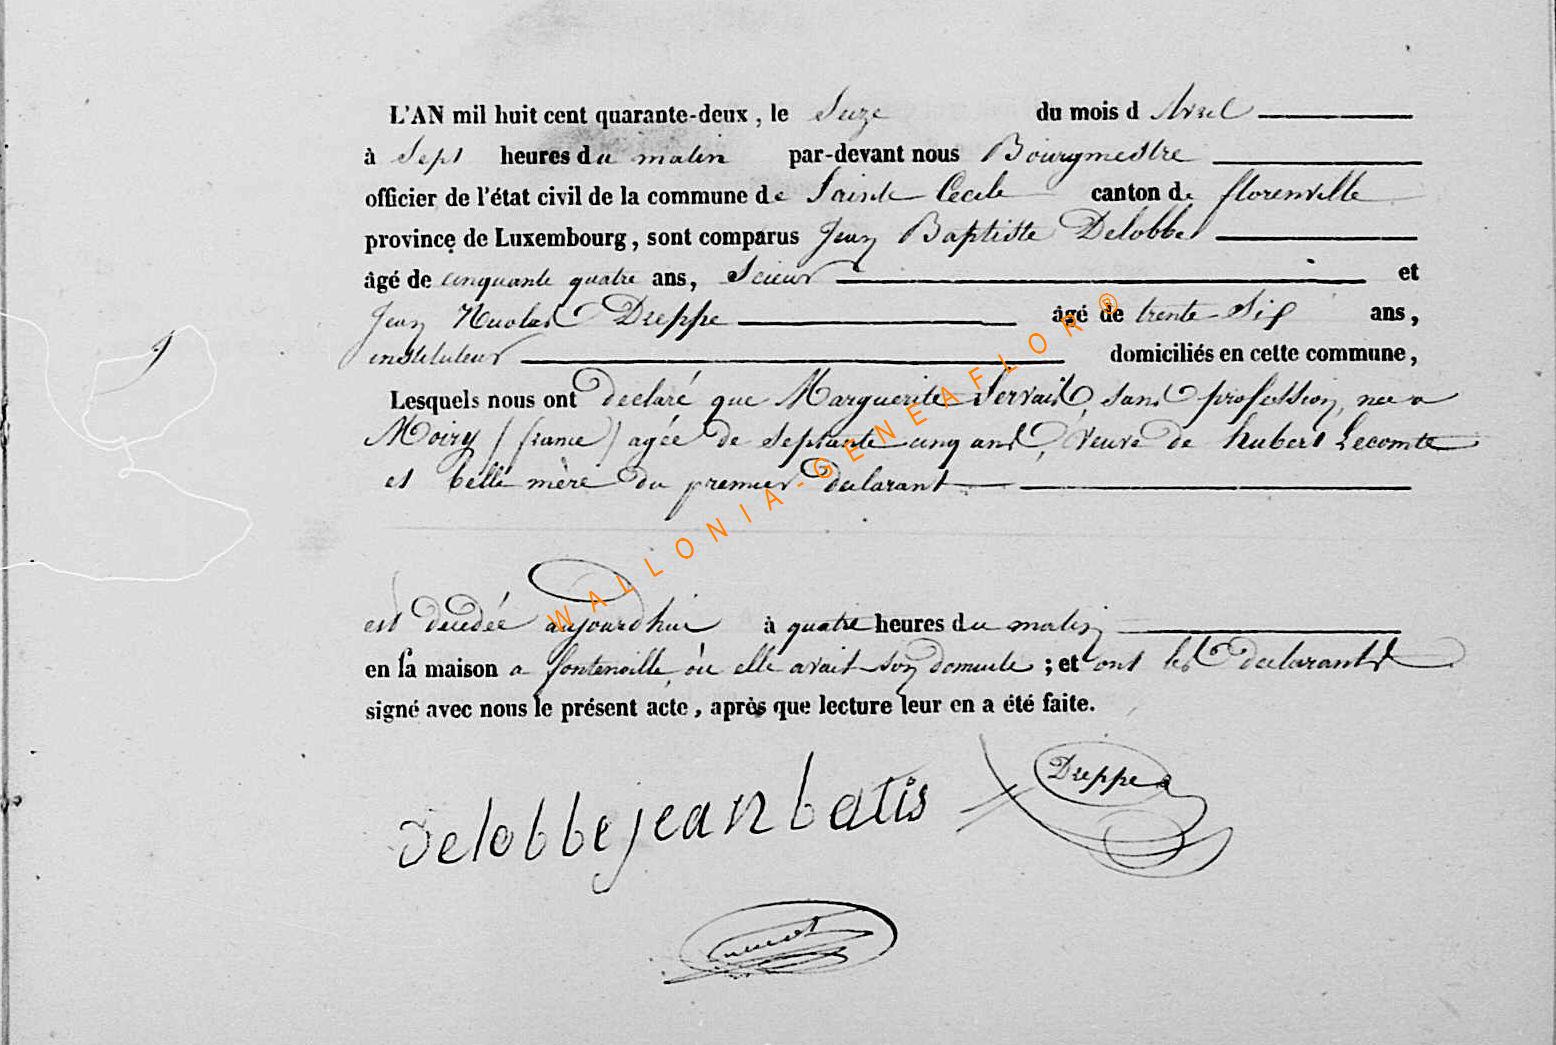 L'AN mil huit cent quarante-deux, le Seize du mois d Avril
à Sept heures du matin par-devant nous Bourgmestre
officier de l'état civil de la commune de Sainte Cecile canton de florenville
province de Luxembourg, sont comparus Jean Baptiste Delobbe
âgé de cinquante quatre ans, Scieur et
Jean Nicolas Dreppe âgé de trente Six ans,
instituteur domiciliés en cette commune,
Lesquels nous ont declaré que Marguerite Servais, sans profession, nee a
Moiry (france) agée de septante cinq ans, veuve de hubert Lecomte
et belle mère du premier declarant
est decedée aujourdhui à quatre heures du matin
en sa maison a fontenoille, où elle avait son domicile ; et ont les declarants
signé avec nous le présent acte, après que lecture leur en a été faite.
Delobbe jean batis
Dreppe
WALLONIA-GENEAFLOR®